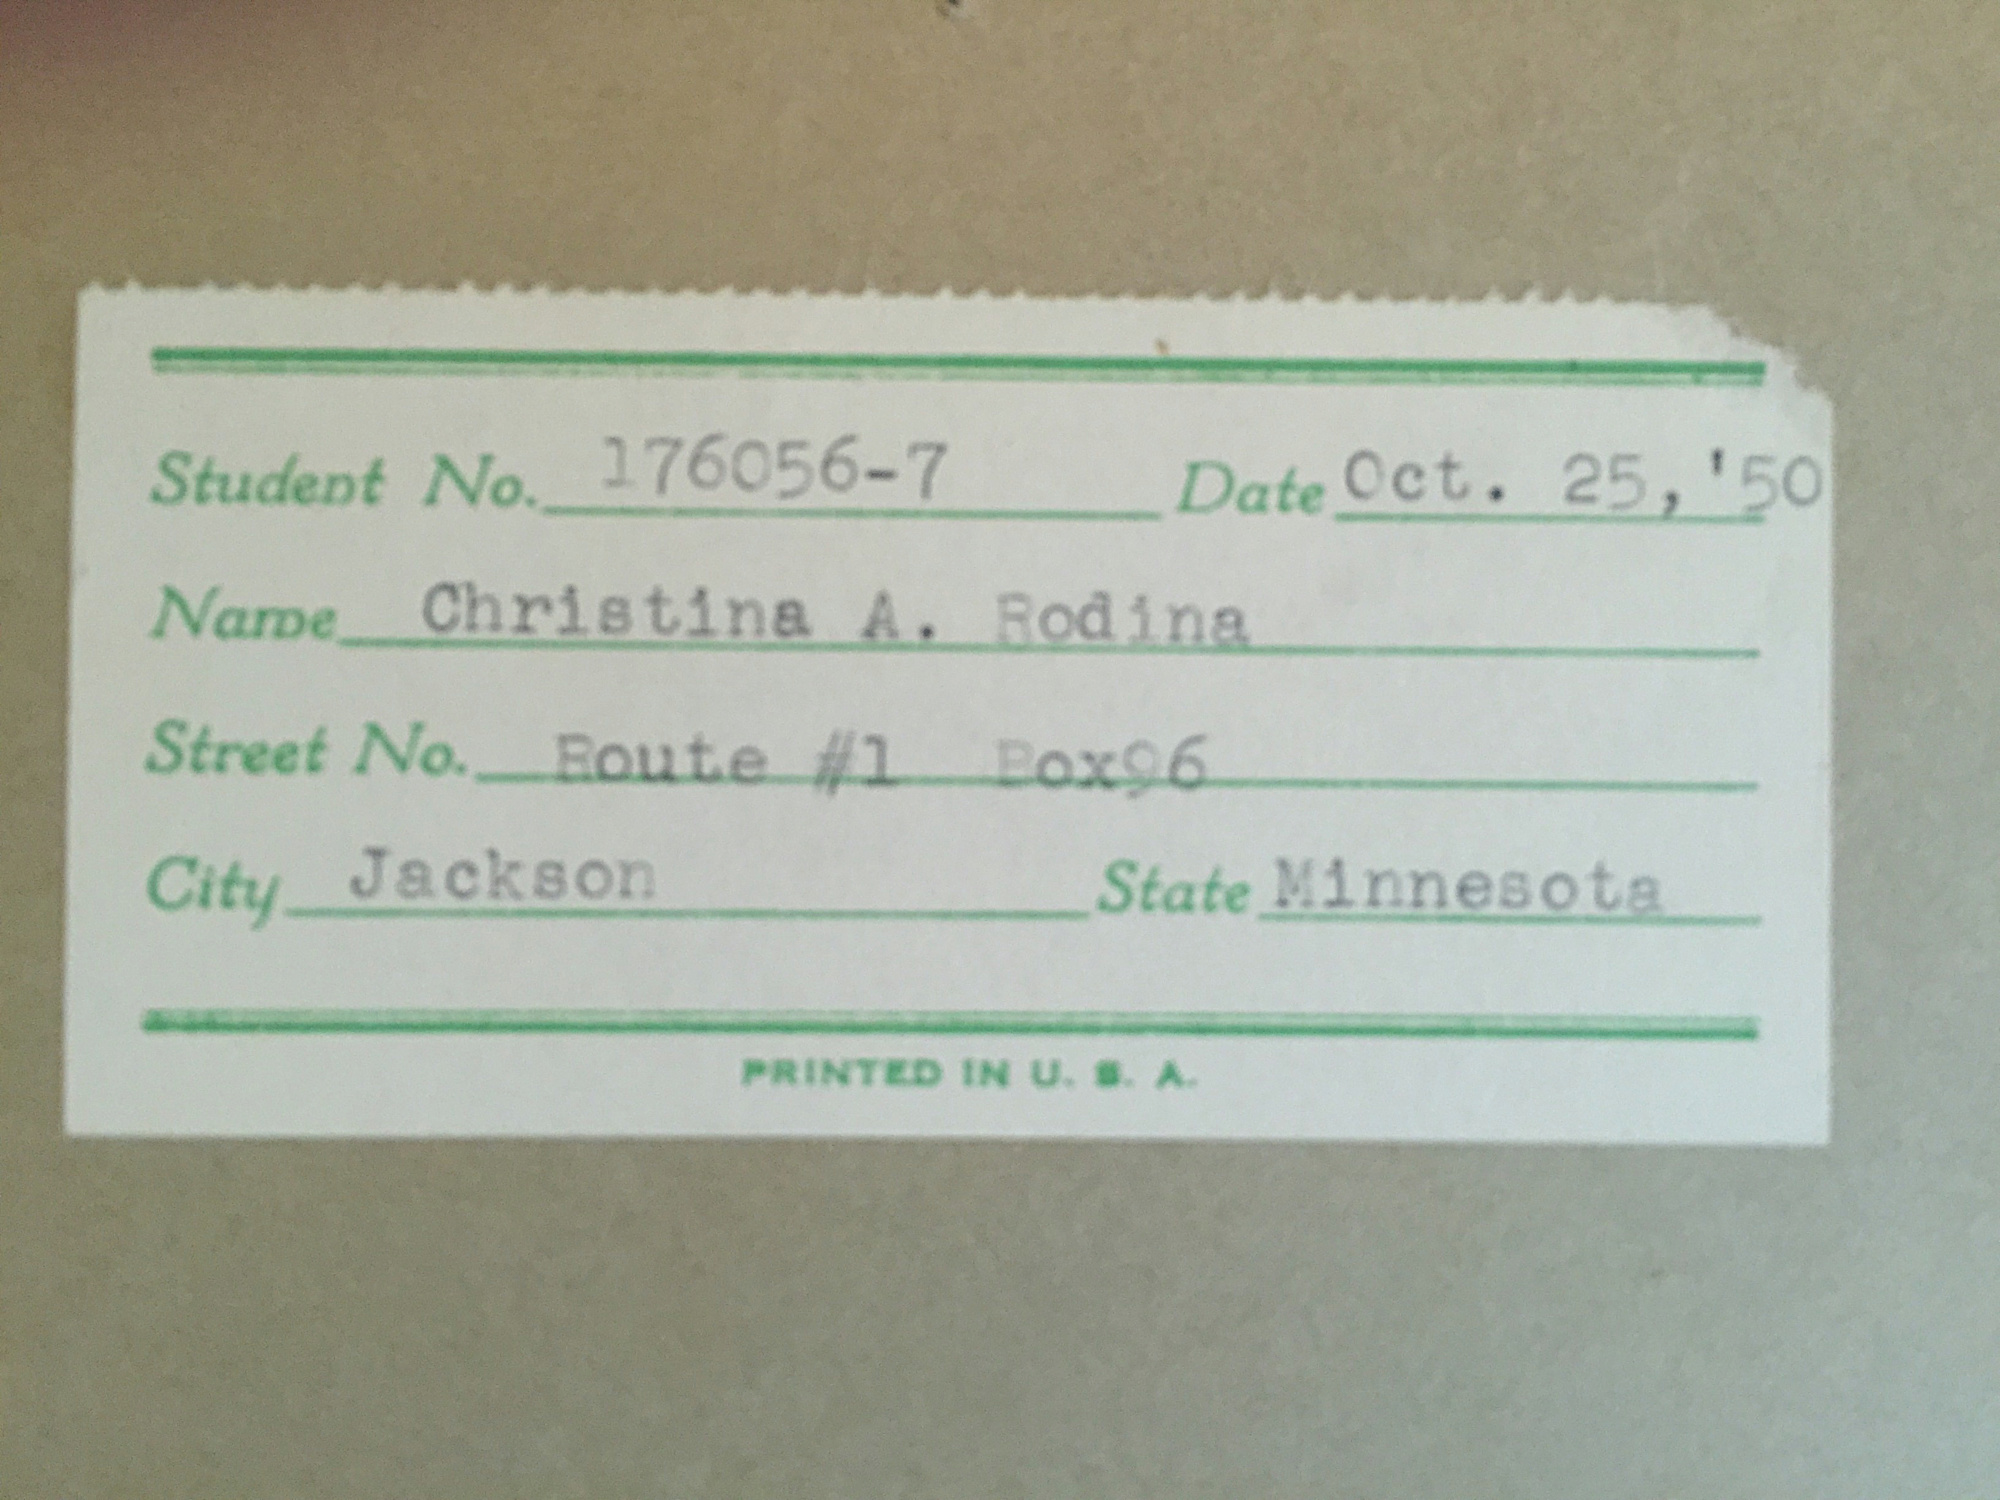 Student No. 176056-7 Date Oct. 25, '50
Name Christina A. Rodina
Street No. Route #1 Box96
City Jackson State Minnesota
PRINTED IN U. S. A.